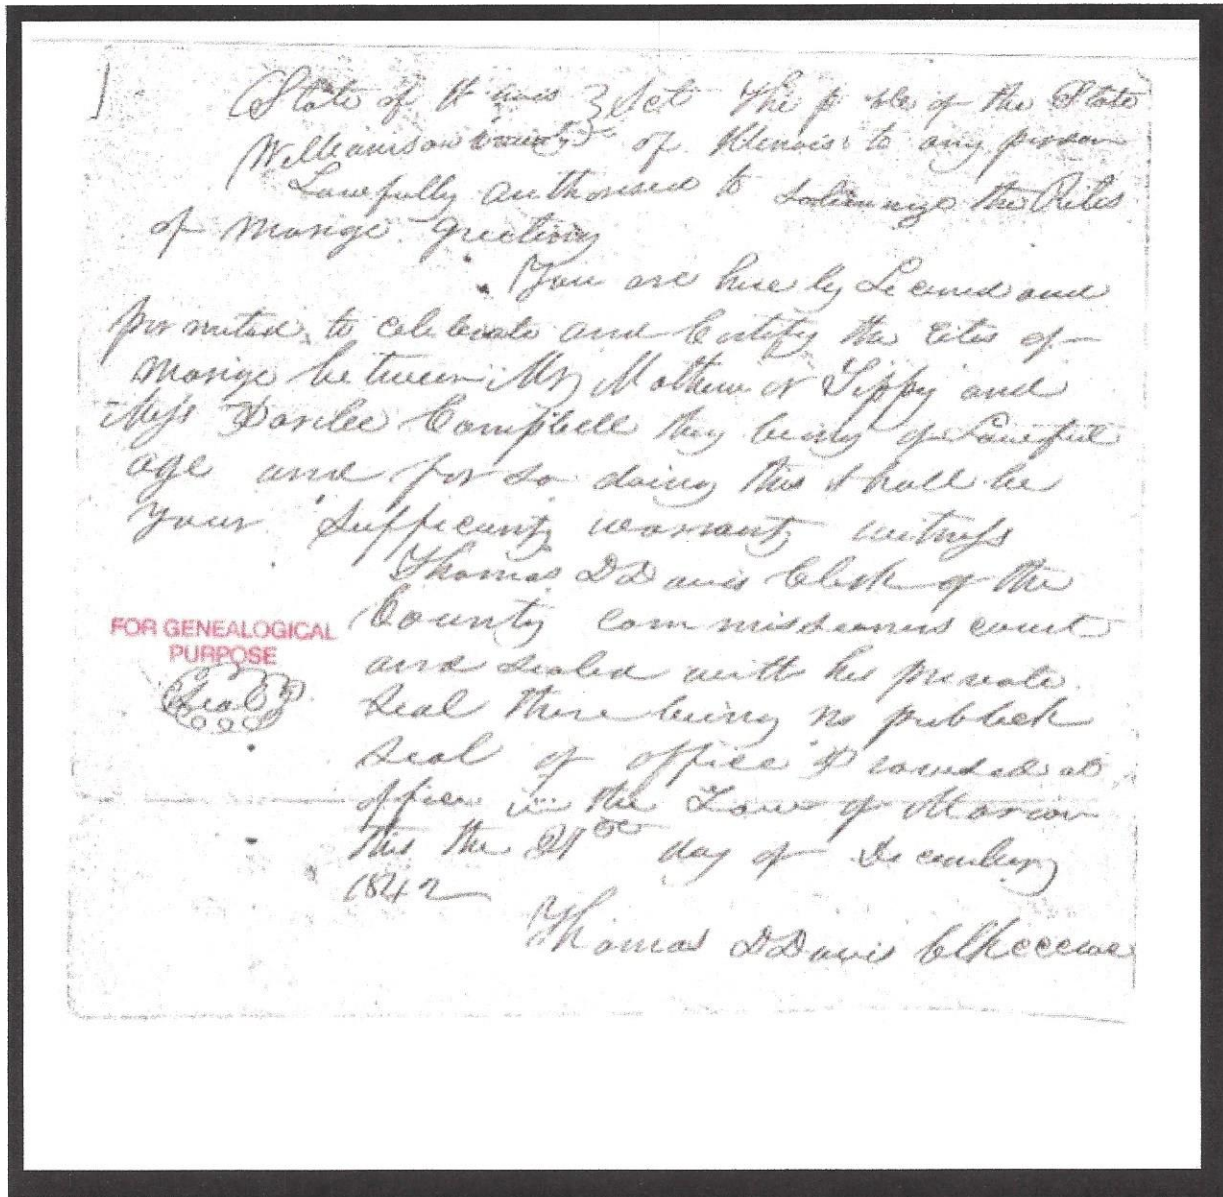 State of Il nois } Sct The p ple of the State
Williamson County of Illinois to any person
Lawfully authorised to Solemnize the Rites
of marige Greeting
You are herely Licensed and
permited to celebrate and Certify the Rites of
marige between Mr Mathew Tippy and
Miss Campbell they being of Lawful
age and for so doing this shall be
your sufficent warrant witness
Thomas D Davis Clerk of the
County commissioners court
and sealed with his private
FOR GENEALOGICAL
PURPOSE
Seal
seal there being no publick
seal of office Provided at
office in the Town of Marion
this the 21st day of December
1842
Thomas D Davis Clk